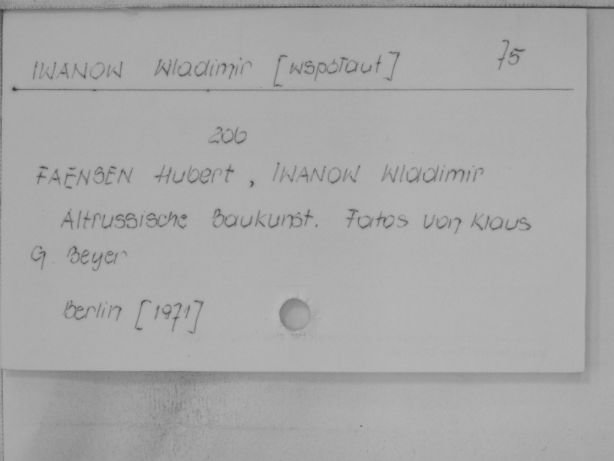 IWANOW Wladimir [współaut] 75
zob
FAENSEN Hubert, IWANOW Wladimir
Altrussische Baukunst. Fotos von Klaus
G. Beyer
Berlin [1971]